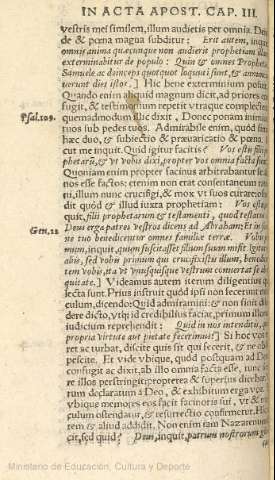 IN ACTA APOST. CAP. III.
vestris mei similem, illum audietis per omnia. Dein
de & pœna magna subditur: Erit autem, inquit,
omnis anima quæcunque non audierit prophetam illum,
exterminabitur de populo: Quin & omnes Prophetæ
Samuele ac deinceps quotquot loquuti sunt, & annun
ciarunt dies istos.] Hic bene exterminium posuit
Quando enim aliquid magnum dicit, ad priores con
fugit, & testimonium repetit vtraque complectens
Psal.109. quemadmodum illic dixit, Donec ponam inimicos
tuos sub pedes tuos. Admirabile enim, quòd simul
hæc duo, & subiectio & præuaricatio & pœna.
cut me inquit. Quid igitur facitis? Vos estis filij
phetarũ, & vt vobis dixi, propter vos omnia facta sunt
Quoniam enim propter facinus arbitrabantur se alie
nos esse factos: etenim non erat consentaneum nunc
ri, illum nunc crucifigi, & mox vt suos curare; osten
dit quòd & illud iuxta prophetiam: Vos estis, in
quit, filij prophetarum & testamenti, quod testatus
Deus erga patres vestros dicens ad Abraham; Et in
Gen.22 ne tuo benedicentur omnes familiæ terræ. Vobis
mum, inquit, quum suscitasset filium suum misit. Igitur
alijs, sed vobis primum qui crucifixistis illum, benedicen
tem vobis, ita vt vnusquisque vestrum conuertat se ab
quitate.] Videamus autem iterum diligentius quæ
lecta sunt. Prius instruit quòd ipsi non fecerunt
culum, dicendo; Quid admiramini: & non sinit di
dere dicto, vtque id credibilius faciat, primum illorum
iudicium reprehendit: Quid in nos intenditis, quasi
propria virtute aut pietate fecerimus?] Si hoc vos
ret ac turbat, discite quis sit qui fecerit, & ne obstu
pescite. Et vide vbique, quòd postquam ad Deum
confugit ac dixit, ab illo omnia facta esse, tunc
re illos perstringit:
rum declaratum à Deo, & exhibitum erga vos.
vbique memores eos facit facinoris sui, vt &
culum ostendatur, & resurrectio confirmetur. Hic
tem & aliud addidit. Non enim iam Nazarenum
cit, sed quid? Deus, inquit, patrum nostrorum
Ministerio de Educación, Cultura y Deporte